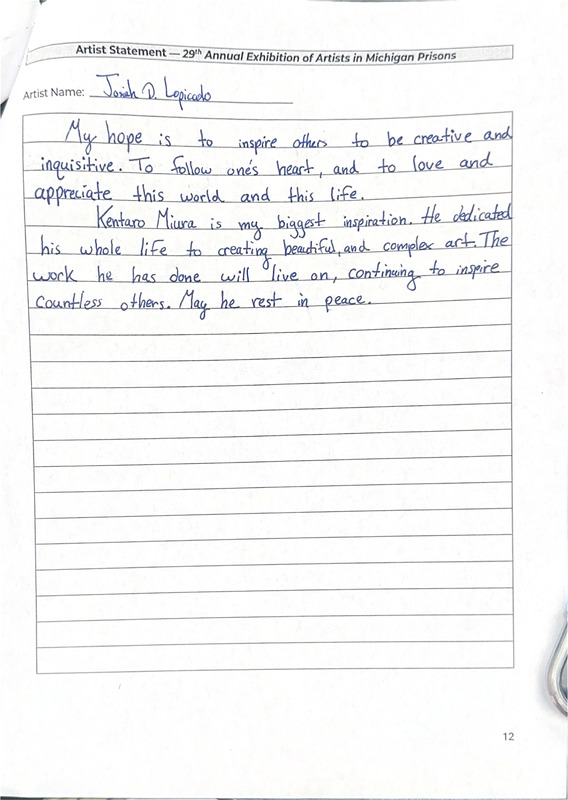 Artist Statement — 29th Annual Exhibition of Artists in Michigan Prisons
Artist Name: Josiah D. Lopicado
My hope is to inspire others to be creative and
inquisitive. To follow one's heart, and to love and
appreciate this world and this life.
Kentaro Miura is my biggest inspiration. He dedicated
his whole life to creating beautiful, and complex art. The
work he has done will live on, continuing to inspire
countless others. May he rest in peace.
12